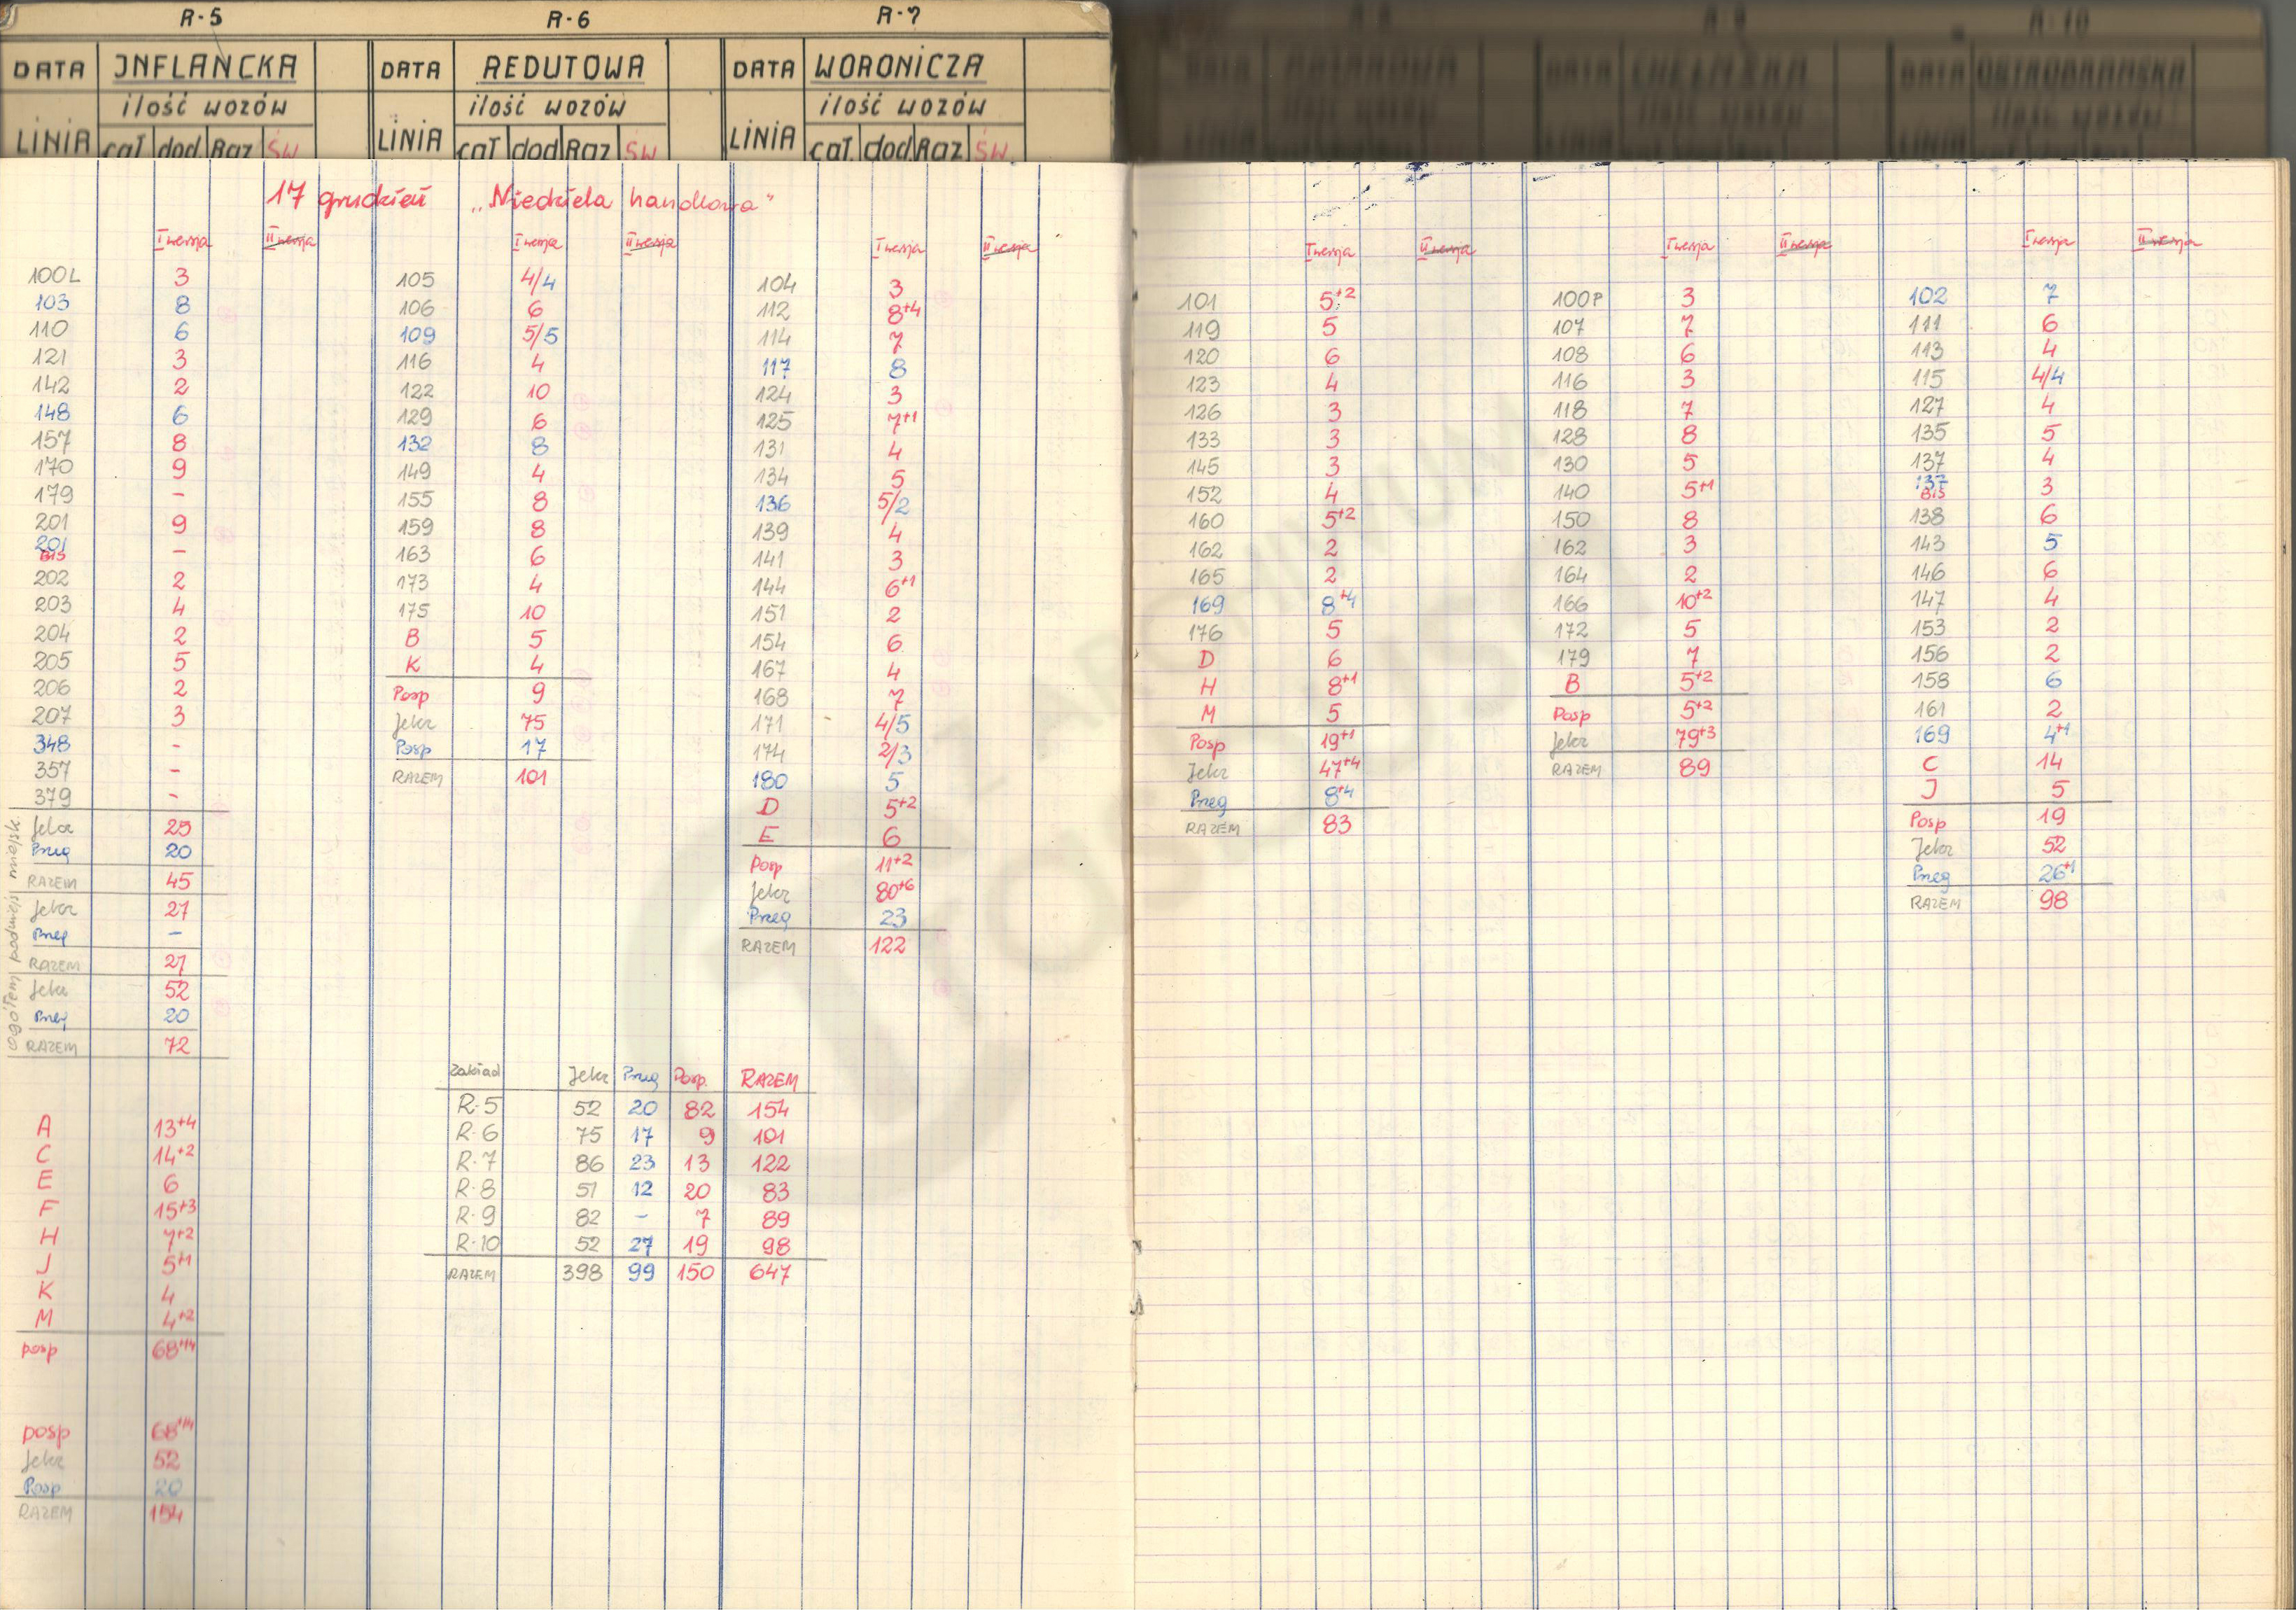 R-5
JNFLANCKA
DATA
ilość wozów
LiNiA cał dod. Raz św
R-6
REDUTOWA
DATA
ilość wozów
LiNiA cał dod Raz św
R-7
WORONICZA
DATA
ilość wozów
LiNiA cał. dod. Raz św
R-10
17 grudzień „Niedziela handlowa"
I wersja II wersja
100L 3
103 8
110 6
121 3
142 2
148 6
157 8
170 9
179 -
201 9
201 BIS -
202 2
203 4
204 2
205 5
206 2
207 3
348 -
357 -
379 -
miejsk.
Jelcz 25
Preg 20
RAZEM 45
podmiejs
Jelcz 27
Preg -
RAZEM 27
ogółem
Jelcz 52
Preg 20
RAZEM 72
A 13+4
C 14+2
E 6
F 15+3
H 7+2
J 5+1
K 4
M 4+2
posp 68+14
posp 68+14
Jelcz 52
Posp 20
RAZEM 154
I wersja II wersja
105 4/4
106 6
109 5/5
116 4
122 10
129 6
132 8
149 4
155 8
159 8
163 6
173 4
175 10
B 5
K 4
Posp 9
Jelcz 75
Posp 17
RAZEM 101
I wersja II wersja
104 3
112 8+4
114 7
117 8
124 3
125 7+1
131 4
134 5
136 5/2
139 4
141 3
144 6+1
151 2
154 6
167 4
168 7
171 4/5
174 2/3
180 5
D 5+2
E 6
Posp 11+2
Jelcz 80+6
Preg 23
RAZEM 122
Zakład Jelcz Preg Posp. RAZEM
R-5 52 20 82 154
R-6 75 17 9 101
R-7 86 23 13 122
R-8 51 12 20 83
R-9 82 - 7 89
R-10 52 27 19 98
RAZEM 398 99 150 647
I wersja II wersja
101 5+2
119 5
120 6
123 4
126 3
133 3
145 3
152 4
160 5+2
162 2
165 2
169 8+4
176 5
D 6
H 8+1
M 5
Posp 19+1
Jelcz 47+4
Preg 8+4
RAZEM 83
I wersja II wersja
100P 3
107 7
108 6
116 3
118 7
128 8
130 5
140 5+1
150 8
162 3
164 2
166 10+2
172 5
179 7
B 5+2
Posp 5+2
Jelcz 79+3
RAZEM 89
I wersja II wersja
102 7
111 6
113 4
115 4/4
127 4
135 5
137 4
137 BIS 3
138 6
143 5
146 6
147 4
153 2
156 2
158 6
161 2
169 4+1
C 14
J 5
Posp 19
Jelcz 52
Preg 26+1
RAZEM 98